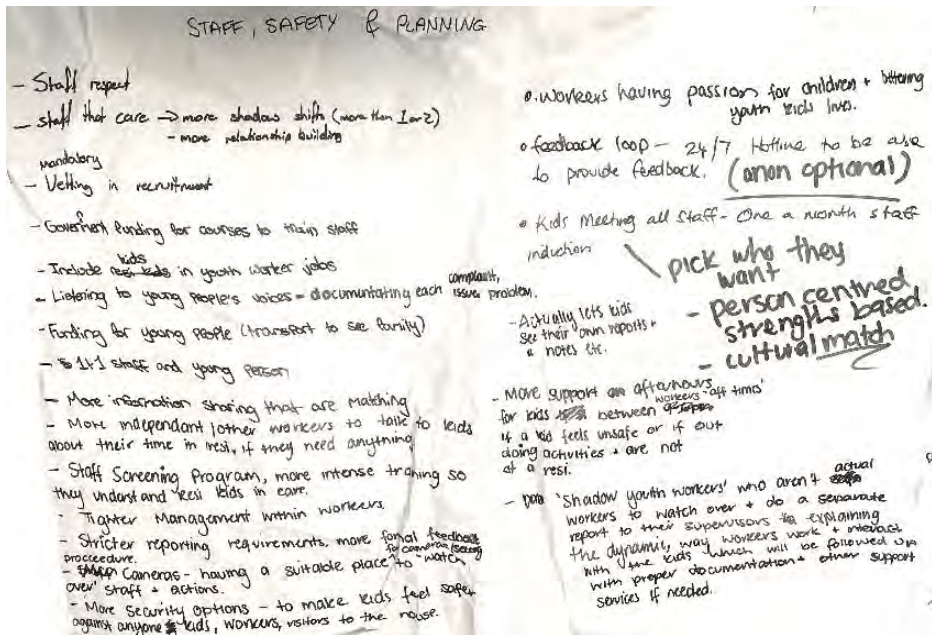 STAFF, SAFETY & PLANNING
- Staff respect
- staff that care → more shadow shifts (more than 1 or 2)
- more relationship building
mandatory
- Vetting in recruitment
- Goverment funding for courses to train staff
kids
- Include resi kids in youth worker jobs
- Listening to young people's voices - documentating each complaint, issue, problem.
- Funding for young people (transport to see family)
- 1:1 staff and young person
- More information sharing that are matching
- More independant / other workers to talk to kids
about their time in resi, if they need anything
- Staff Screening Program, more intense training so
they understand resi kids in care.
- Tighter Management within workers.
- Stricter reporting requirements, more formal feedback
proceedure. for cameras / seeing
- Cameras - having a suitable place to 'watch
over' staff + actions.
- More security options - to make kids feel safer
against anyone kids, workers, visitors to the house.
• workers having passion for children + bettering
youth kids lives.
• feedback loop - 24/7 Hotline to be able
to provide feedback. (anon optional)
• Kids Meeting all staff - One a month staff
induction
pick who they
want
- person centred
strengths based.
- cultural match
- Actually lets kids
see their own reports +
notes etc.
- More support on afterhours
for kids between workers 'off times'
if a kid feels unsafe or if out
doing activities + are not
at a resi.
- 'Shadow youth workers' who aren't actual
workers to watch over + do a separate
report to their supervisors explaining
the dynamic, way workers work + interact
with the kids which will be followed up
with proper documentation + other support
services if needed.